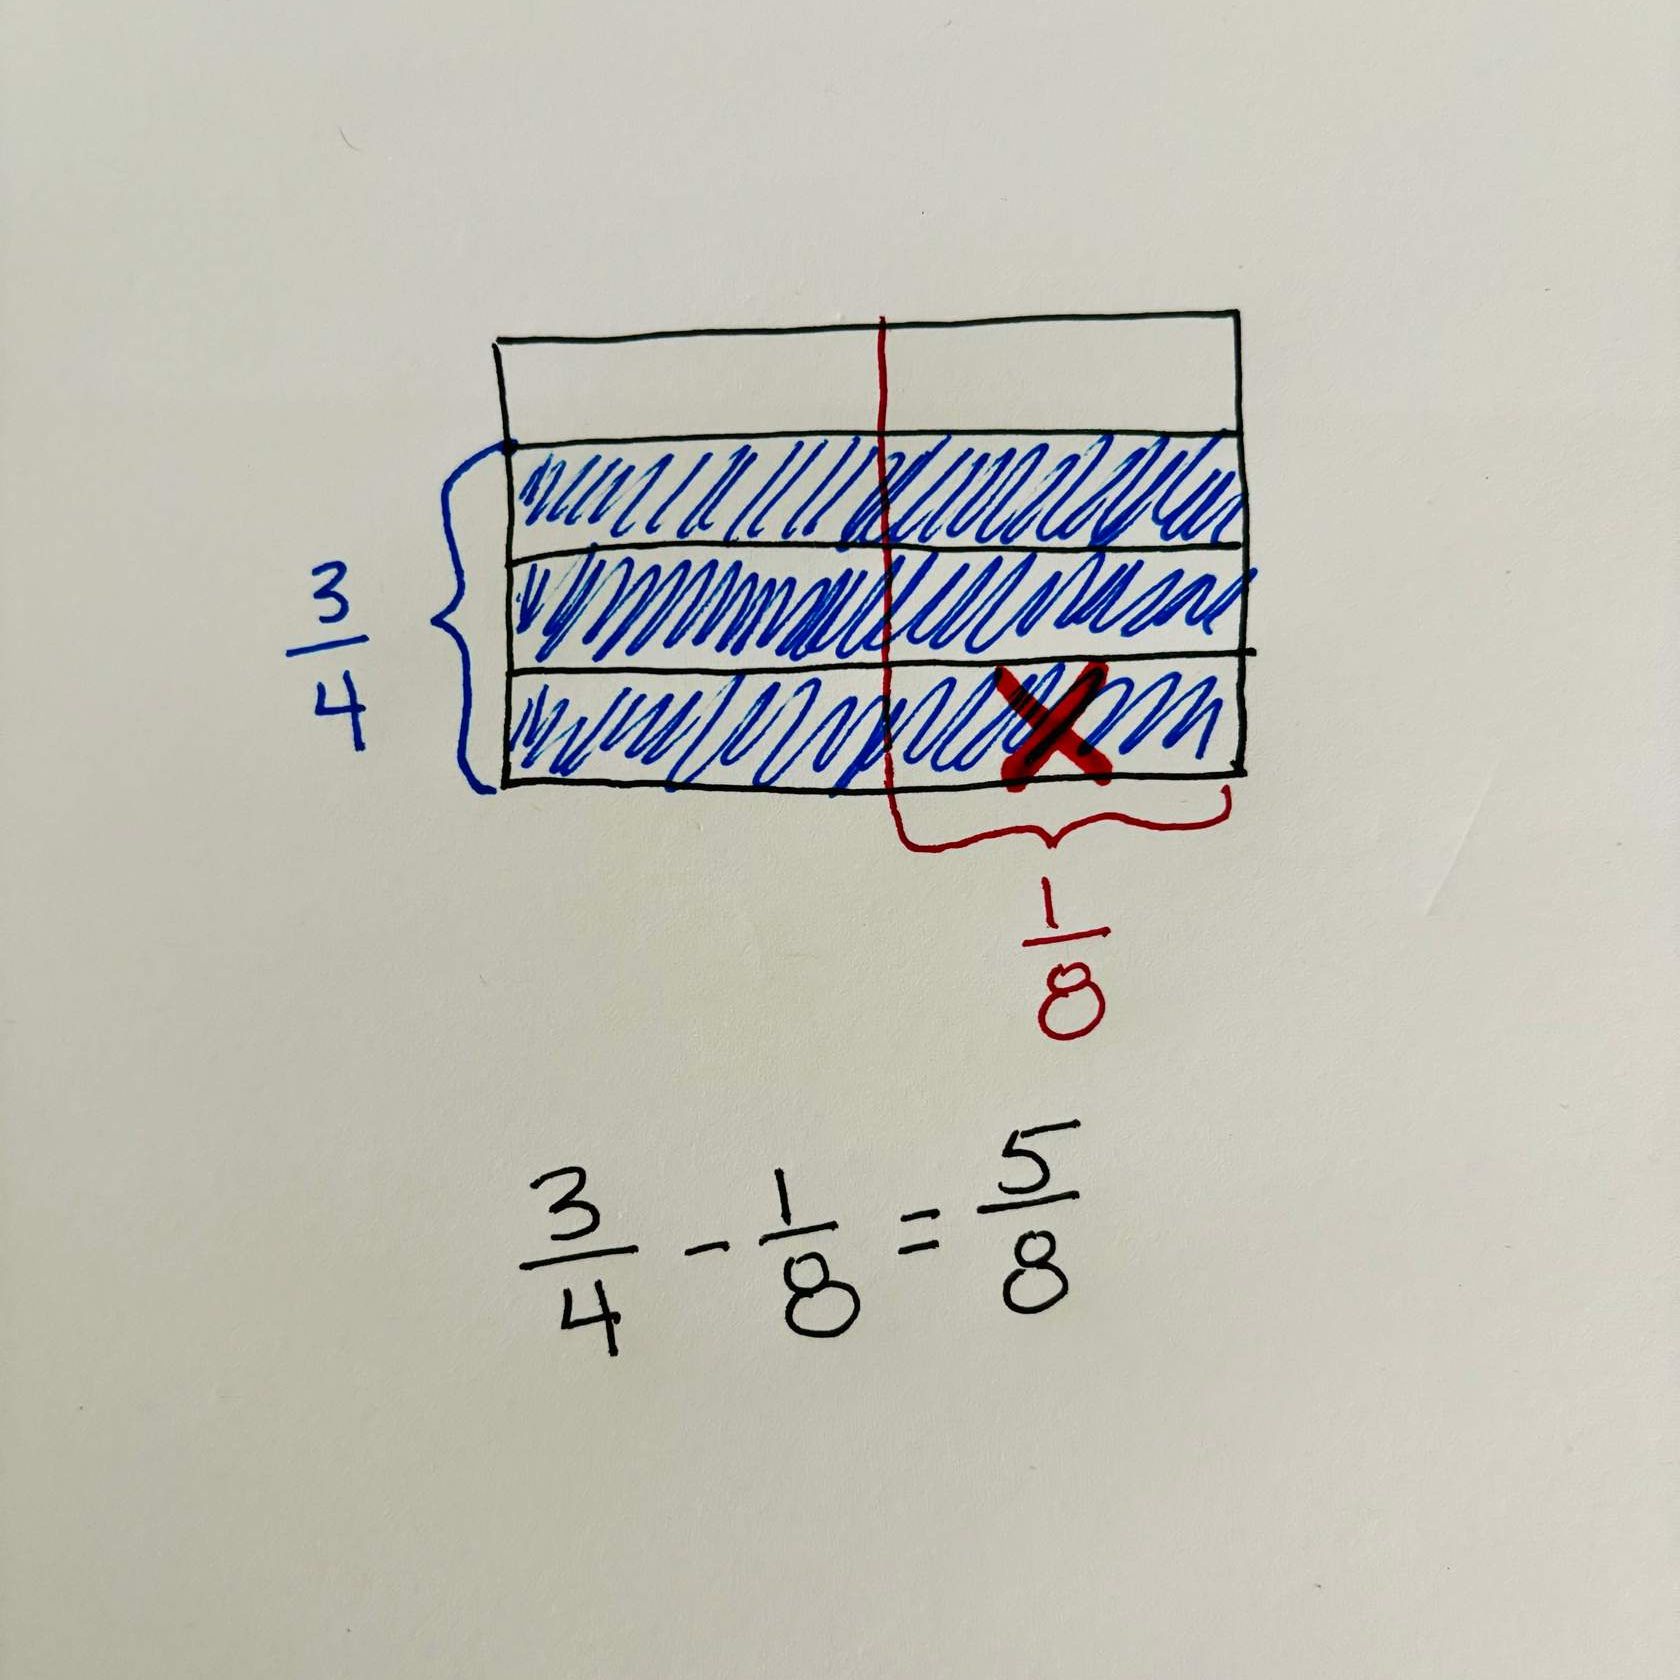 3
4
1
8
3/4 - 1/8 = 5/8